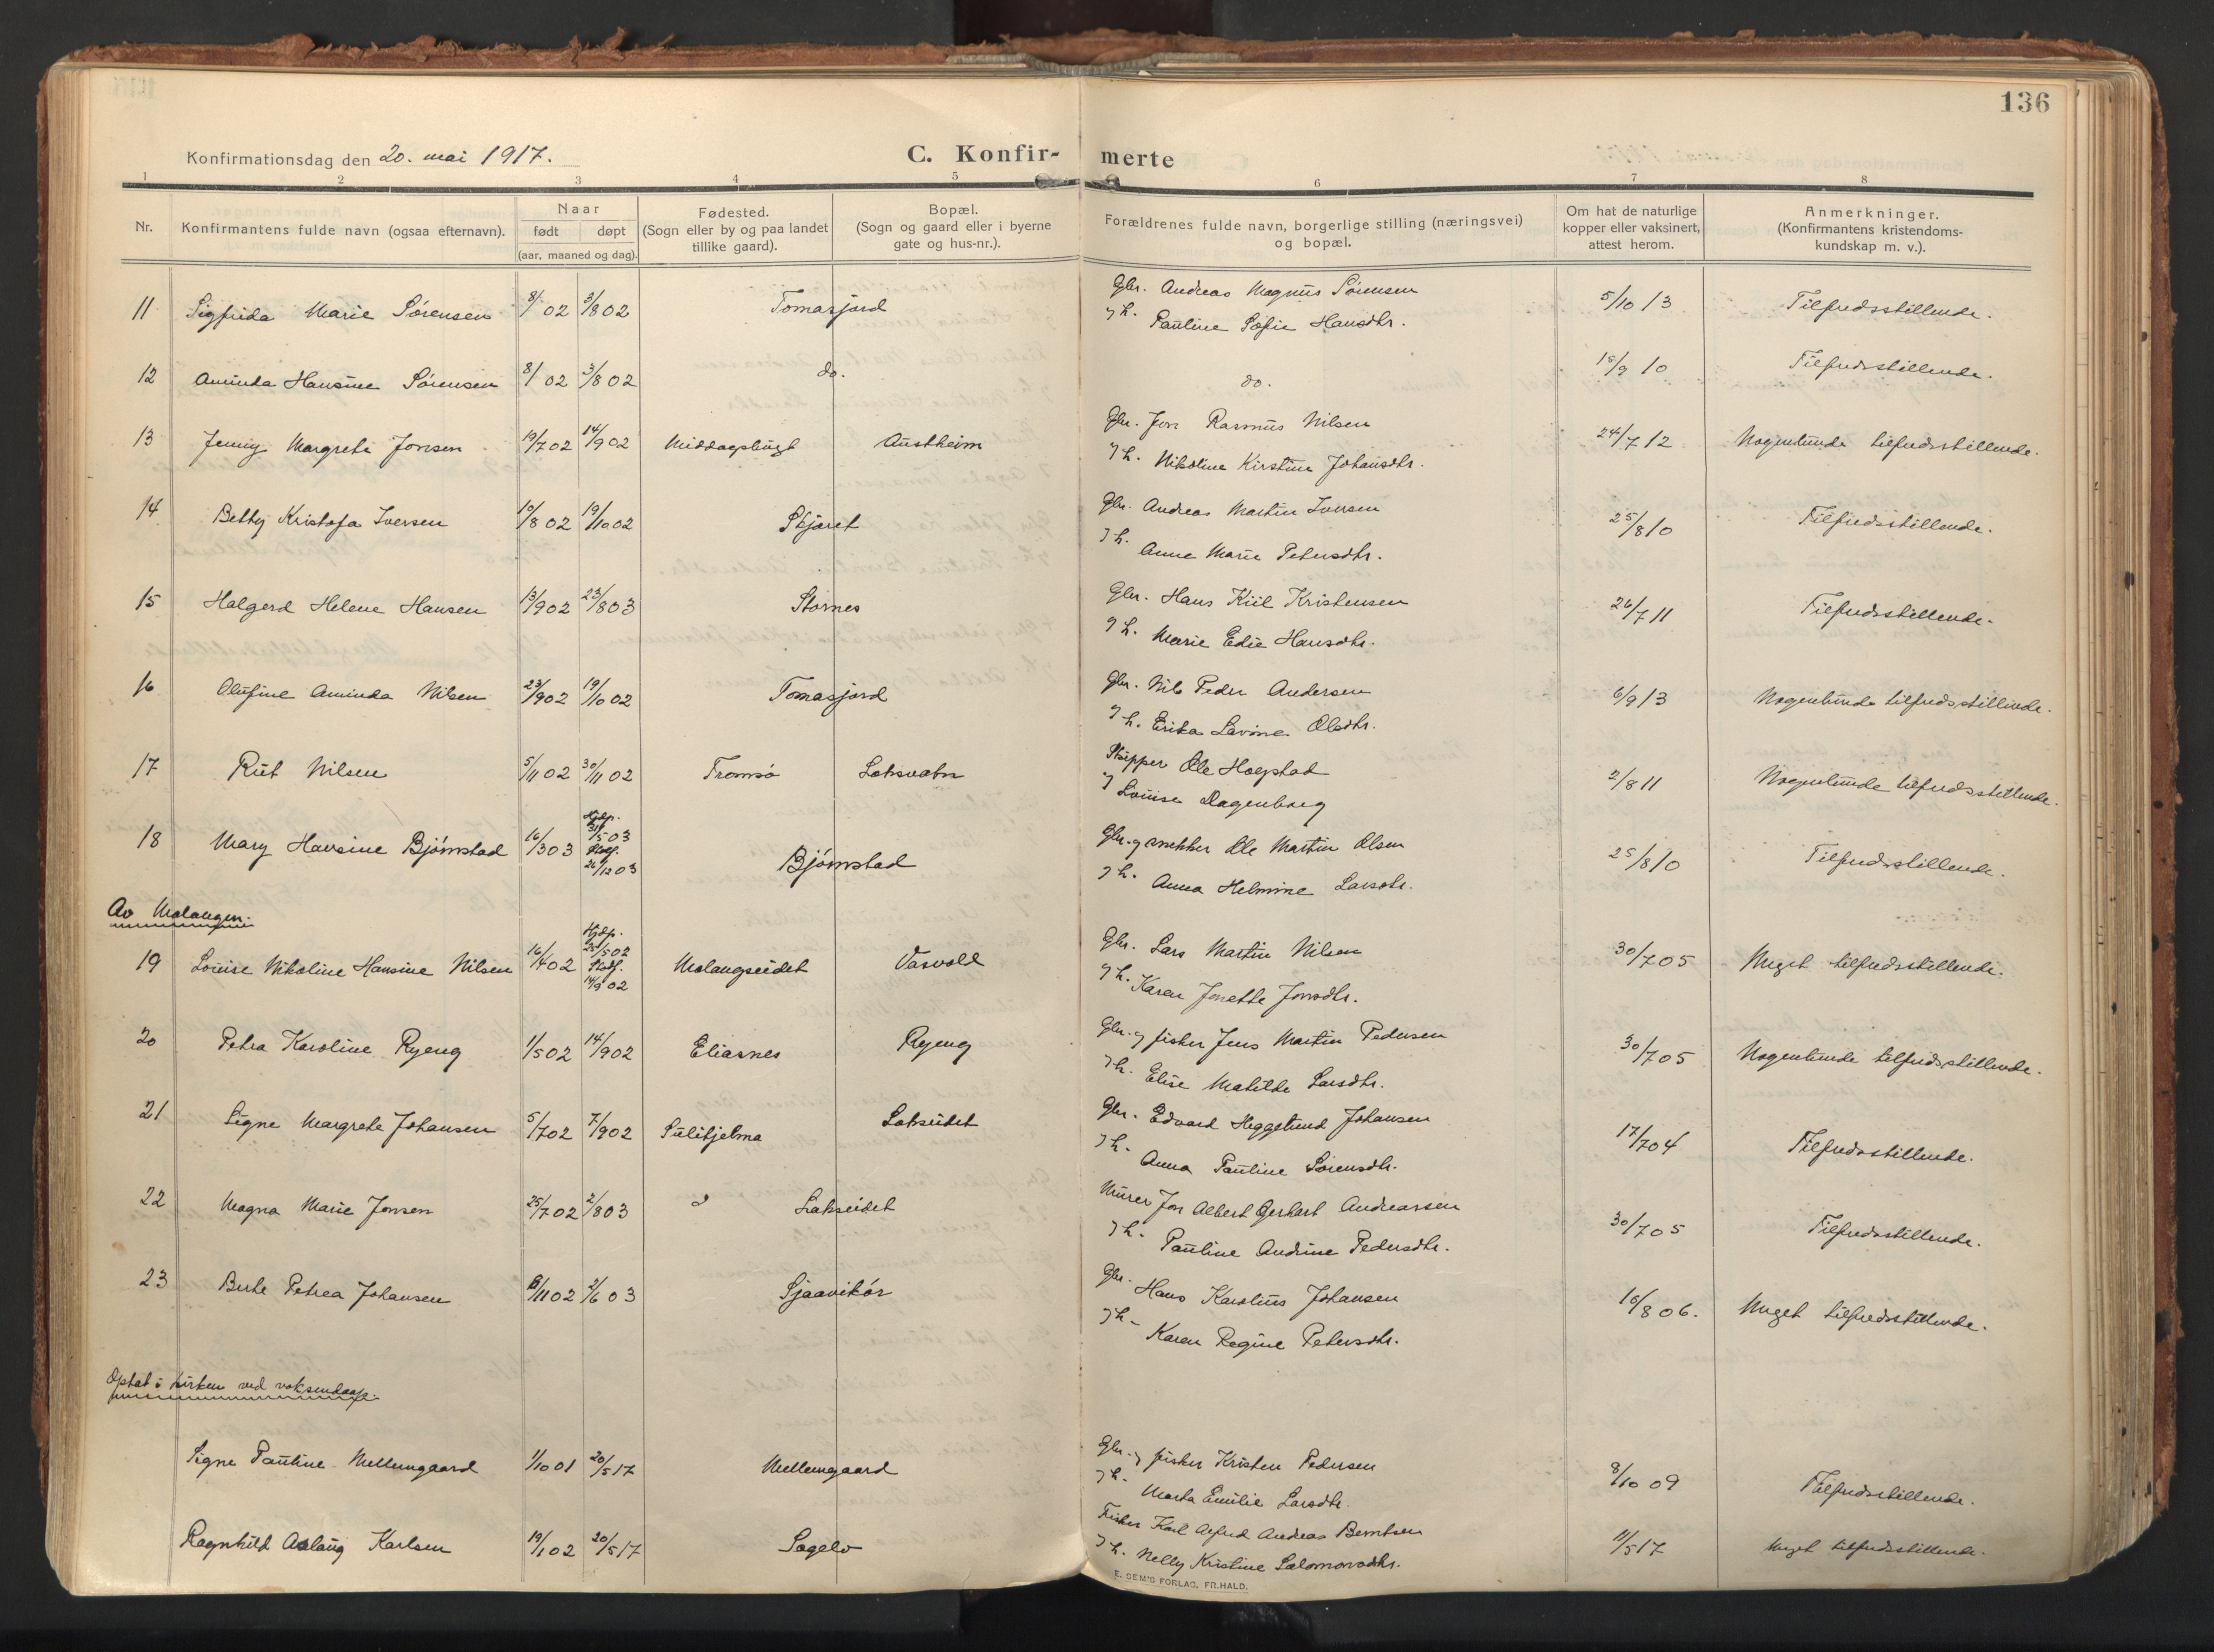 136
Konfirmationsdag den 20. mai 1917.
C. Konfir- merte
1 2 3 4 5 6 7 8
Nr. Konfirmantens fulde navn (ogsaa efternavn). Naar født døpt (aar, maaned og dag). Fødested. (Sogn eller by og paa landet tillike gaard). Bopæl. (Sogn og gaard eller i byerne gate og hus-nr.). Forældrenes fulde navn, borgerlige stilling (næringsvei) og bopæl. Om hat de naturlige kopper eller vaksinert, attest herom. Anmerkninger. (Konfirmantens kristendoms-kundskap m. v.).
11 Sigfrida Marie Sørensen 8/1 02 3/8 02 Tomasjord Gbr. Andreas Magnus Sørensen 5/10 13 Tilfredsstillende.
og h. Pauline Sofie Hansdtr.
12 Aminda Hansine Sørensen 8/1 02 3/8 02 do. do. 15/9 10 Tilfredsstillende.
13 Jenny Margrete Jonsen 19/7 02 14/9 02 Middagsbugt Austheim Gbr. Jon Rasmus Nilsen 24/7 12 Nogenlunde tilfredsstillende.
og h. Nikoline Kirstine Johansdtr.
14 Betty Kristofa Iversen 10/8 02 19/10 02 Skjæret Gbr. Andreas Martin Iversen 25/8 10 Tilfredsstillende.
og h. Anne Marie Petersdtr.
15 Halgerd Helene Hansen 13/9 02 23/8 03 Stornes Gbr. Hans Kiil Kristensen 26/7 11 Tilfredsstillende.
og h. Marie Edie Hansdtr.
16 Olufine Aminda Nilsen 23/9 02 19/10 02 Tomasjord Gbr. Nils Peder Andersen 6/9 13 Nogenlunde tilfredsstillende.
og h. Erika Lavine Olsdtr.
17 Rut Nilsen 5/11 02 30/11 02 Tromsø Laksvatn Skipper Ole Hogstad 2/8 11 Nogenlunde tilfredsstillende.
og Louise Dagenborg
18 Mary Hansine Bjørnstad 16/3 03 Hjdp. 31/5 03 Stadf. 26/12 03 Bjørnstad Gbr. og snekker Ole Martin Olsen 25/8 10 Tilfredsstillende.
og h. Anna Helmine Larsdtr.
Av Malangen.
19 Louise Nikoline Hansine Nilsen 16/4 02 Hjdp. 25/5 02 Stadf. 14/9 02 Malangseidet Vasvold Gbr. Lars Martin Nilsen 30/7 05 Meget tilfredsstillende.
og h. Karen Jonette Jonsdtr.
20 Petra Karoline Ryeng 1/5 02 14/9 02 Eliasnes Ryeng Gbr. og fisker Jens Martin Pedersen 30/7 05 Nogenlunde tilfredsstillende.
og h. Elise Matilde Larsdtr.
21 Signe Margrete Johansen 5/7 02 7/9 02 Sulitjelma Lakseidet Gbr. Edvard Heggelund Johansen 17/7 04 Tilfredsstillende.
og h. Anna Pauline Sørensdtr.
22 Magna Marie Jonsen 25/7 02 2/8 03 Lakseidet Murer Jon Albert Gerhart Andreassen 30/7 05 Tilfredsstillende.
og h. Pauline Andrine Pedersdtr.
23 Berte Petrea Johansen 6/11 02 2/6 03 Sjaavikør Gbr. Hans Karolius Johansen 16/8 06. Meget tilfredsstillende.
og h. Karen Regine Petersdtr.
Optat i kirken ved voksendaap.
Signe Pauline Mellemgaard 1/10 01 20/5 17 Mellemgaard Gbr. og fisker Kristen Pedersen 8/10 09 Tilfredsstillende.
og h. Marta Emilie Larsdtr.
Ragnhild Aslaug Karlsen 19/1 02 20/5 17 Sagelv Fisker Karl Alfred Andreas Berntsen 11/5 17 Meget tilfredsstillende.
og h. Nelly Kristine Salomonsdtr.
E. SEM'S FORLAG, FR.HALD.